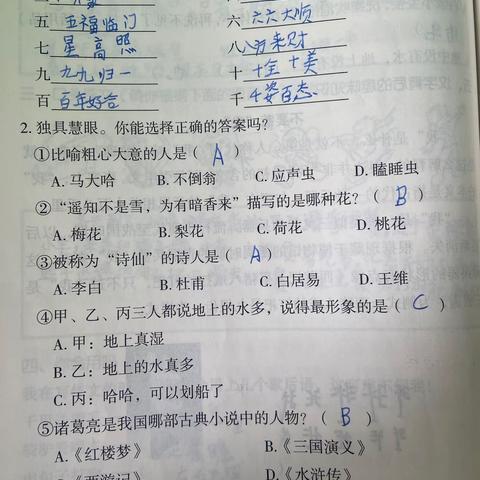 五 五福临门 六 六六大顺
七 星高照 八 八方来财
九 九九归一 十 十全十美
百 百年好合 千 千姿百态
2. 独具慧眼。你能选择正确的答案吗？
①比喻粗心大意的人是（ A ）
A. 马大哈 B. 不倒翁 C. 应声虫 D. 瞌睡虫
②“遥知不是雪，为有暗香来”描写的是哪种花？（ B ）
A. 梅花 B. 梨花 C. 荷花 D. 桃花
③被称为“诗仙”的诗人是（ A ）
A. 李白 B. 杜甫 C. 白居易 D. 王维
④甲、乙、丙三人都说地上的水多，说得最形象的是（ C ）
A. 甲：地上真湿
B. 乙：地上的水真多
C. 丙：哈哈，可以划船了
⑤诸葛亮是我国哪部古典小说中的人物？（ B ）
A.《红楼梦》 B.《三国演义》
C.《西游记》 D.《水浒传》